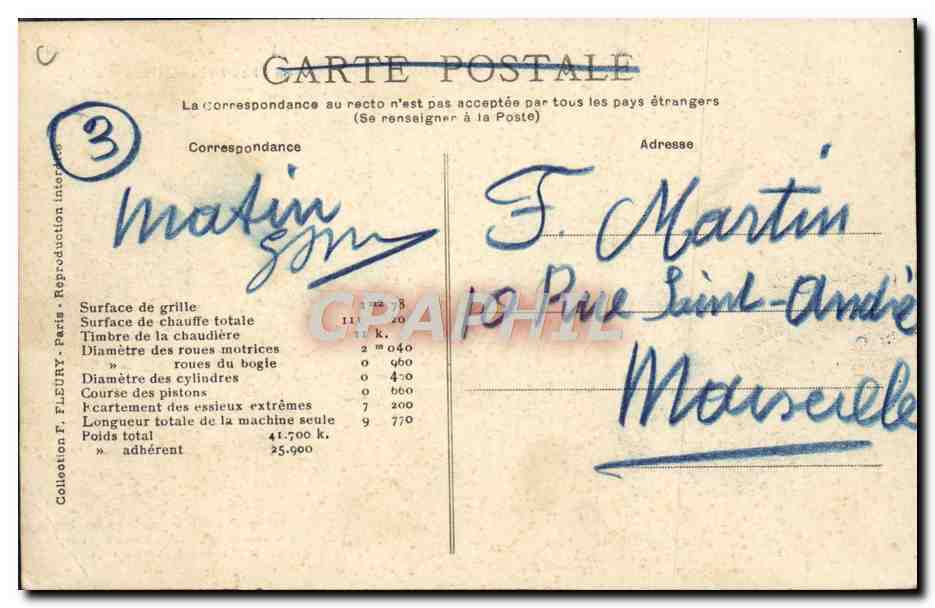 CARTE POSTALE
La Correspondance au recto n'est pas acceptée par tous les pays étrangers
(Se renseigner à la Poste)
3
Correspondance
Adresse
Matin
F. Martin
10 Rue Saint-André
Marseille
Surface de grille 1 m2 78
Surface de chauffe totale
Timbre de la chaudière 11 k.
Diamètre des roues motrices 2 m 040
» roues du bogie 0 960
Diamètre des cylindres 0
Course des pistons 0 660
Ecartement des essieux extrêmes 7 200
Longueur totale de la machine seule 9 770
Poids total 41.700 k.
» adhérent 25.900
Collection F. FLEURY - Paris - Reproduction interdite
CPAPHIL